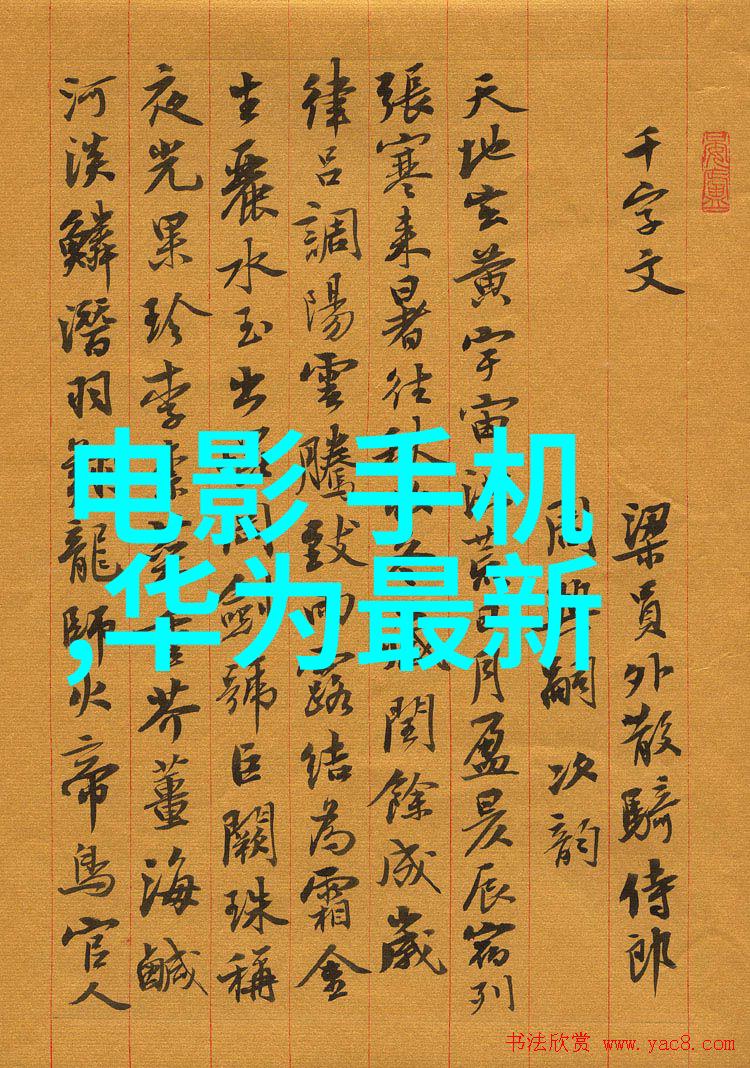 千字文 梁員外散騎侍郎
周興嗣 次韵
天地玄黄宇宙洪荒日月盈昃辰宿列
張寒来暑往秋冬藏閏餘成歲
律吕調陽雲騰致雨露結為霜金
生麗水玉出岡劍號巨闕珠稱
夜光果珍李柰重芥薑海鹹
河淡鱗潛羽翔龍師火帝鳥官人
电影 手机
,华为最新
书法欣赏 www.yac8.com